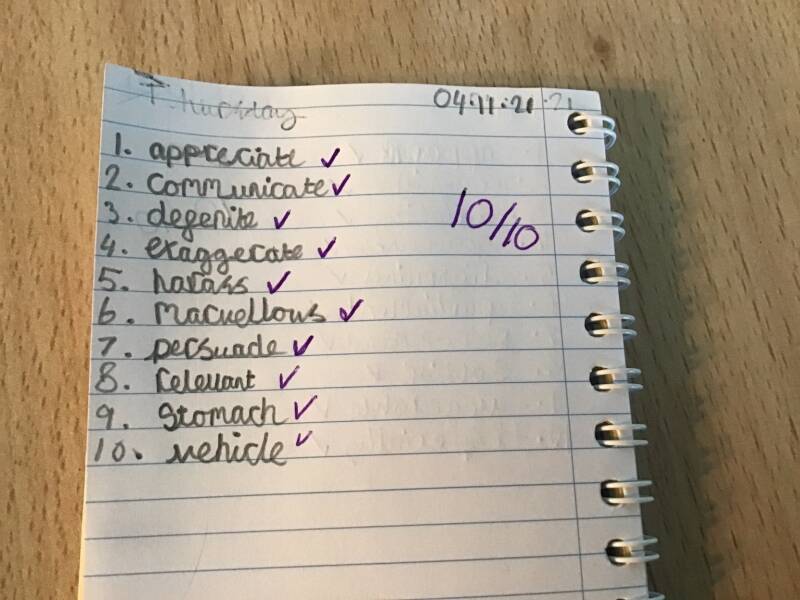 Thursday 04.11.21
1. appreciate ✓
2. communicate ✓
3. definite ✓
4. exaggerate ✓
10/10
5. harass ✓
6. marvellous ✓
7. persuade ✓
8. relevant ✓
9. stomach ✓
10. vehicle ✓